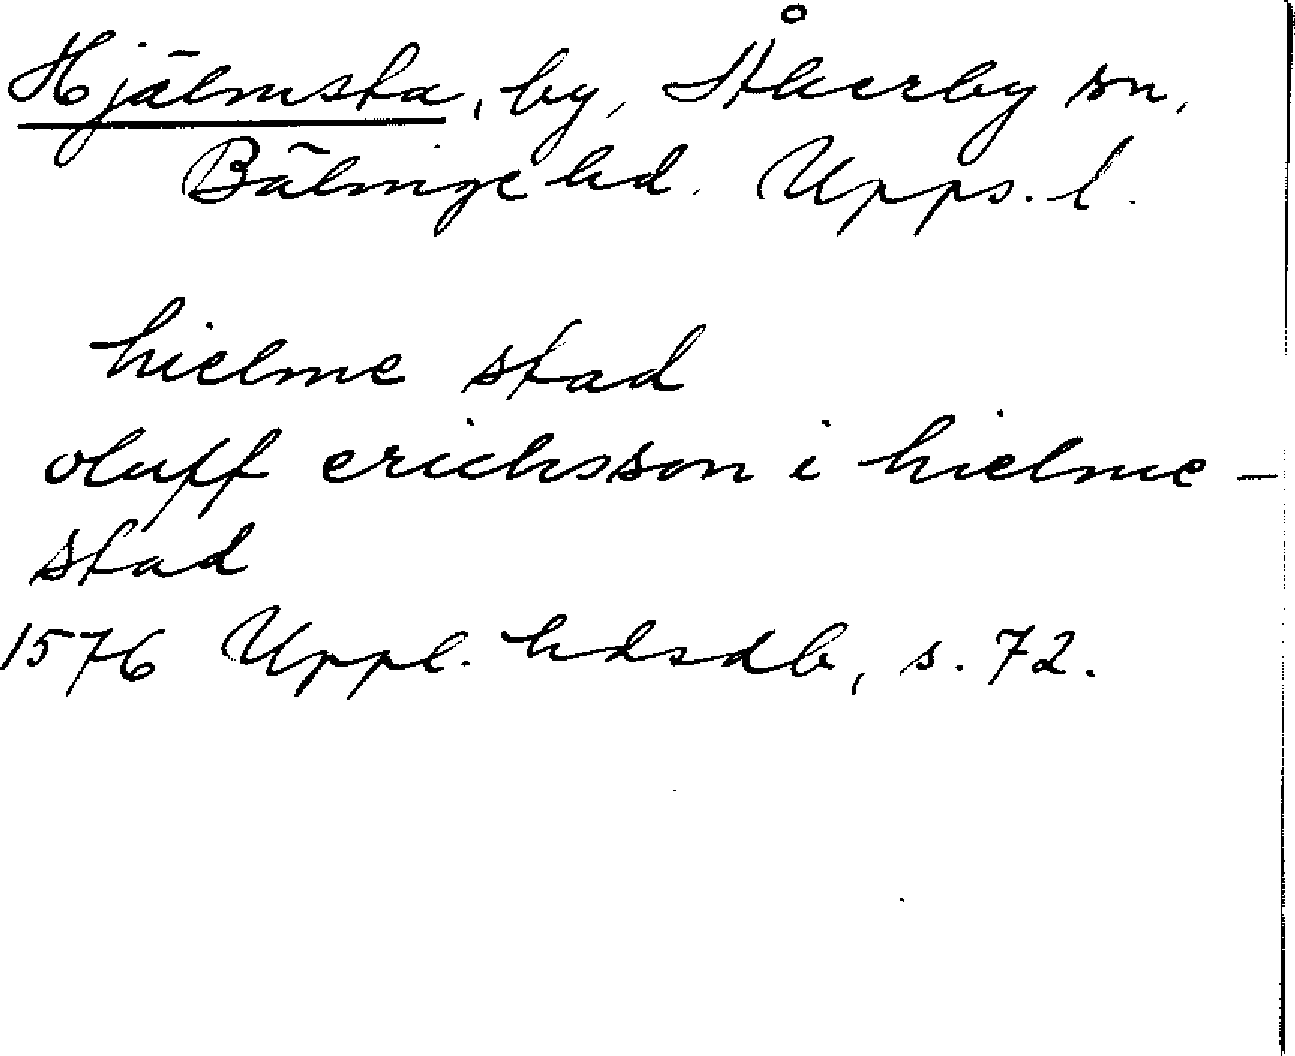 Hjälmsta, by, Åkerby sn,
Bälinge hd. Upps. l.
hielme stad
oluff erichsson i hielme-
stad
1576 Uppl. hdsdb, s. 72.